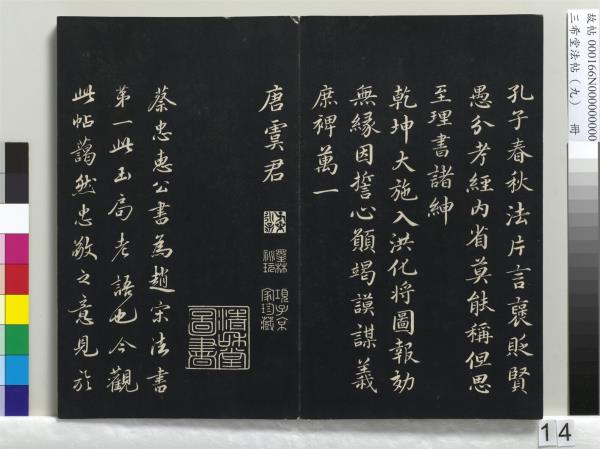 孔子春秋法片言褒貶賢
愚分考經內省莫能稱但思
至理書諸紳
乾坤大施入洪化將圖報効
無緣因誓心願竭謨謀義
庶裨萬一
唐虞君
墨林祕玩
項子京家珍藏
蔡忠惠公書為趙宋法書
第一此玉局老語也今觀
此帖藹然忠敬之意見於
故帖 000166N000000000
三希堂法帖（九） 冊
14